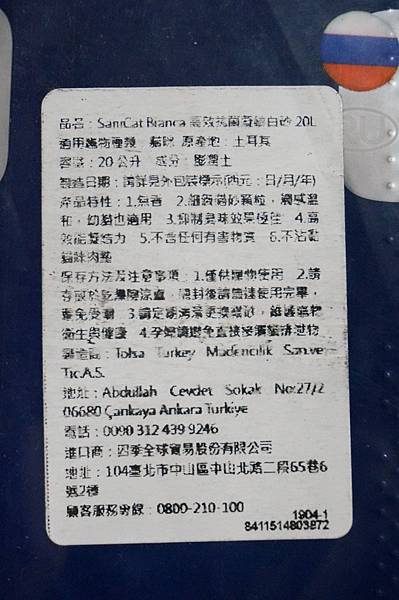 品名：SaniCat Bianca 高效抗菌凝結白砂 20L
適用寵物種類：貓咪 原產地：土耳其
容量：20公升 成分：膨潤土
製造日期：請詳見外包裝標示(西元：日/月/年)
產品特性：1.無香 2.細緻貓砂顆粒，觸感溫
和，幼貓也適用 3.抑制臭味效果極佳 4.高
效能凝結力 5.不含任何有害物質 6.不沾黏
貓咪肉墊
保存方法及注意事項：1.僅供寵物使用 2.請
存放於乾燥陰涼處，開封後請盡速使用完畢，
避免受潮 3.請定期清潔更換貓砂，維護寵物
衛生與健康 4.孕婦請避免直接接觸貓排泄物
製造商：Tolsa Turkey Madencilik San.ve
Tic.A.S.
地址：Abdullah Cevdet Sokak No:27/2
06680 Çankaya Ankara Turkiye
電話：0090 312 439 9246
進口商：四季全球貿易股份有限公司
地址：104臺北市中山區中山北路二段65巷6
號2樓
顧客服務專線：0800-210-100
1904-1
8411514803872